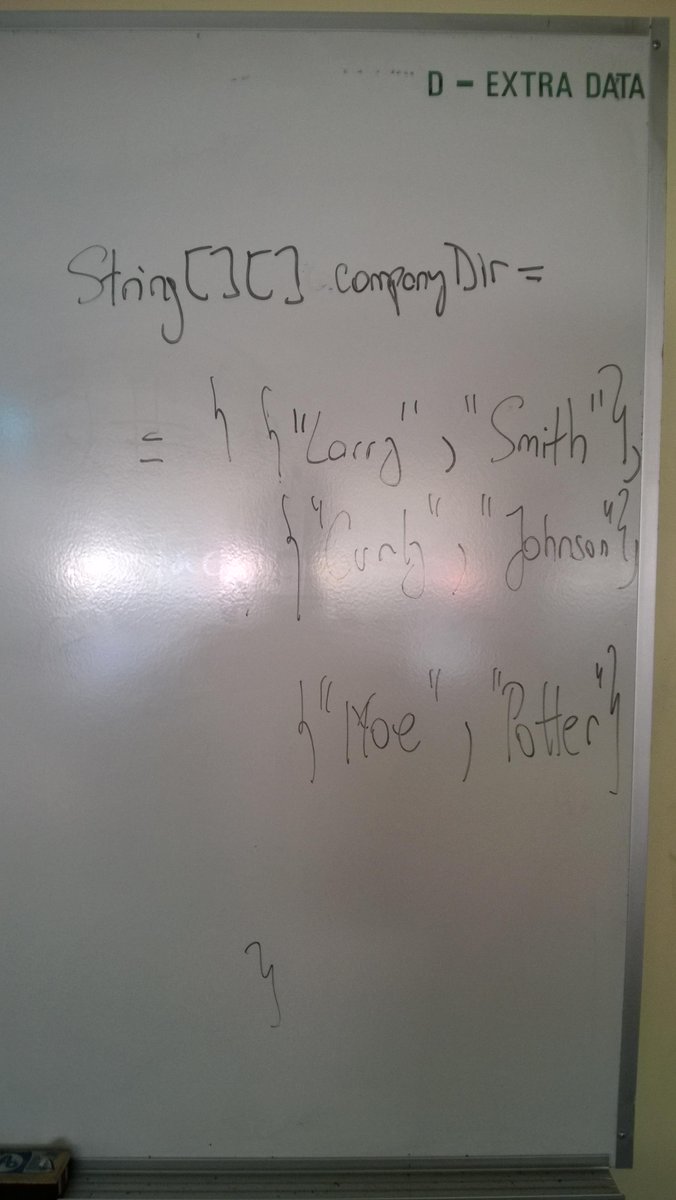 D - EXTRA DATA
String[][] companyDir =
= { {"Larry", "Smith"},
{"Curly", "Johnson"},
{"Moe", "Potter"}
}